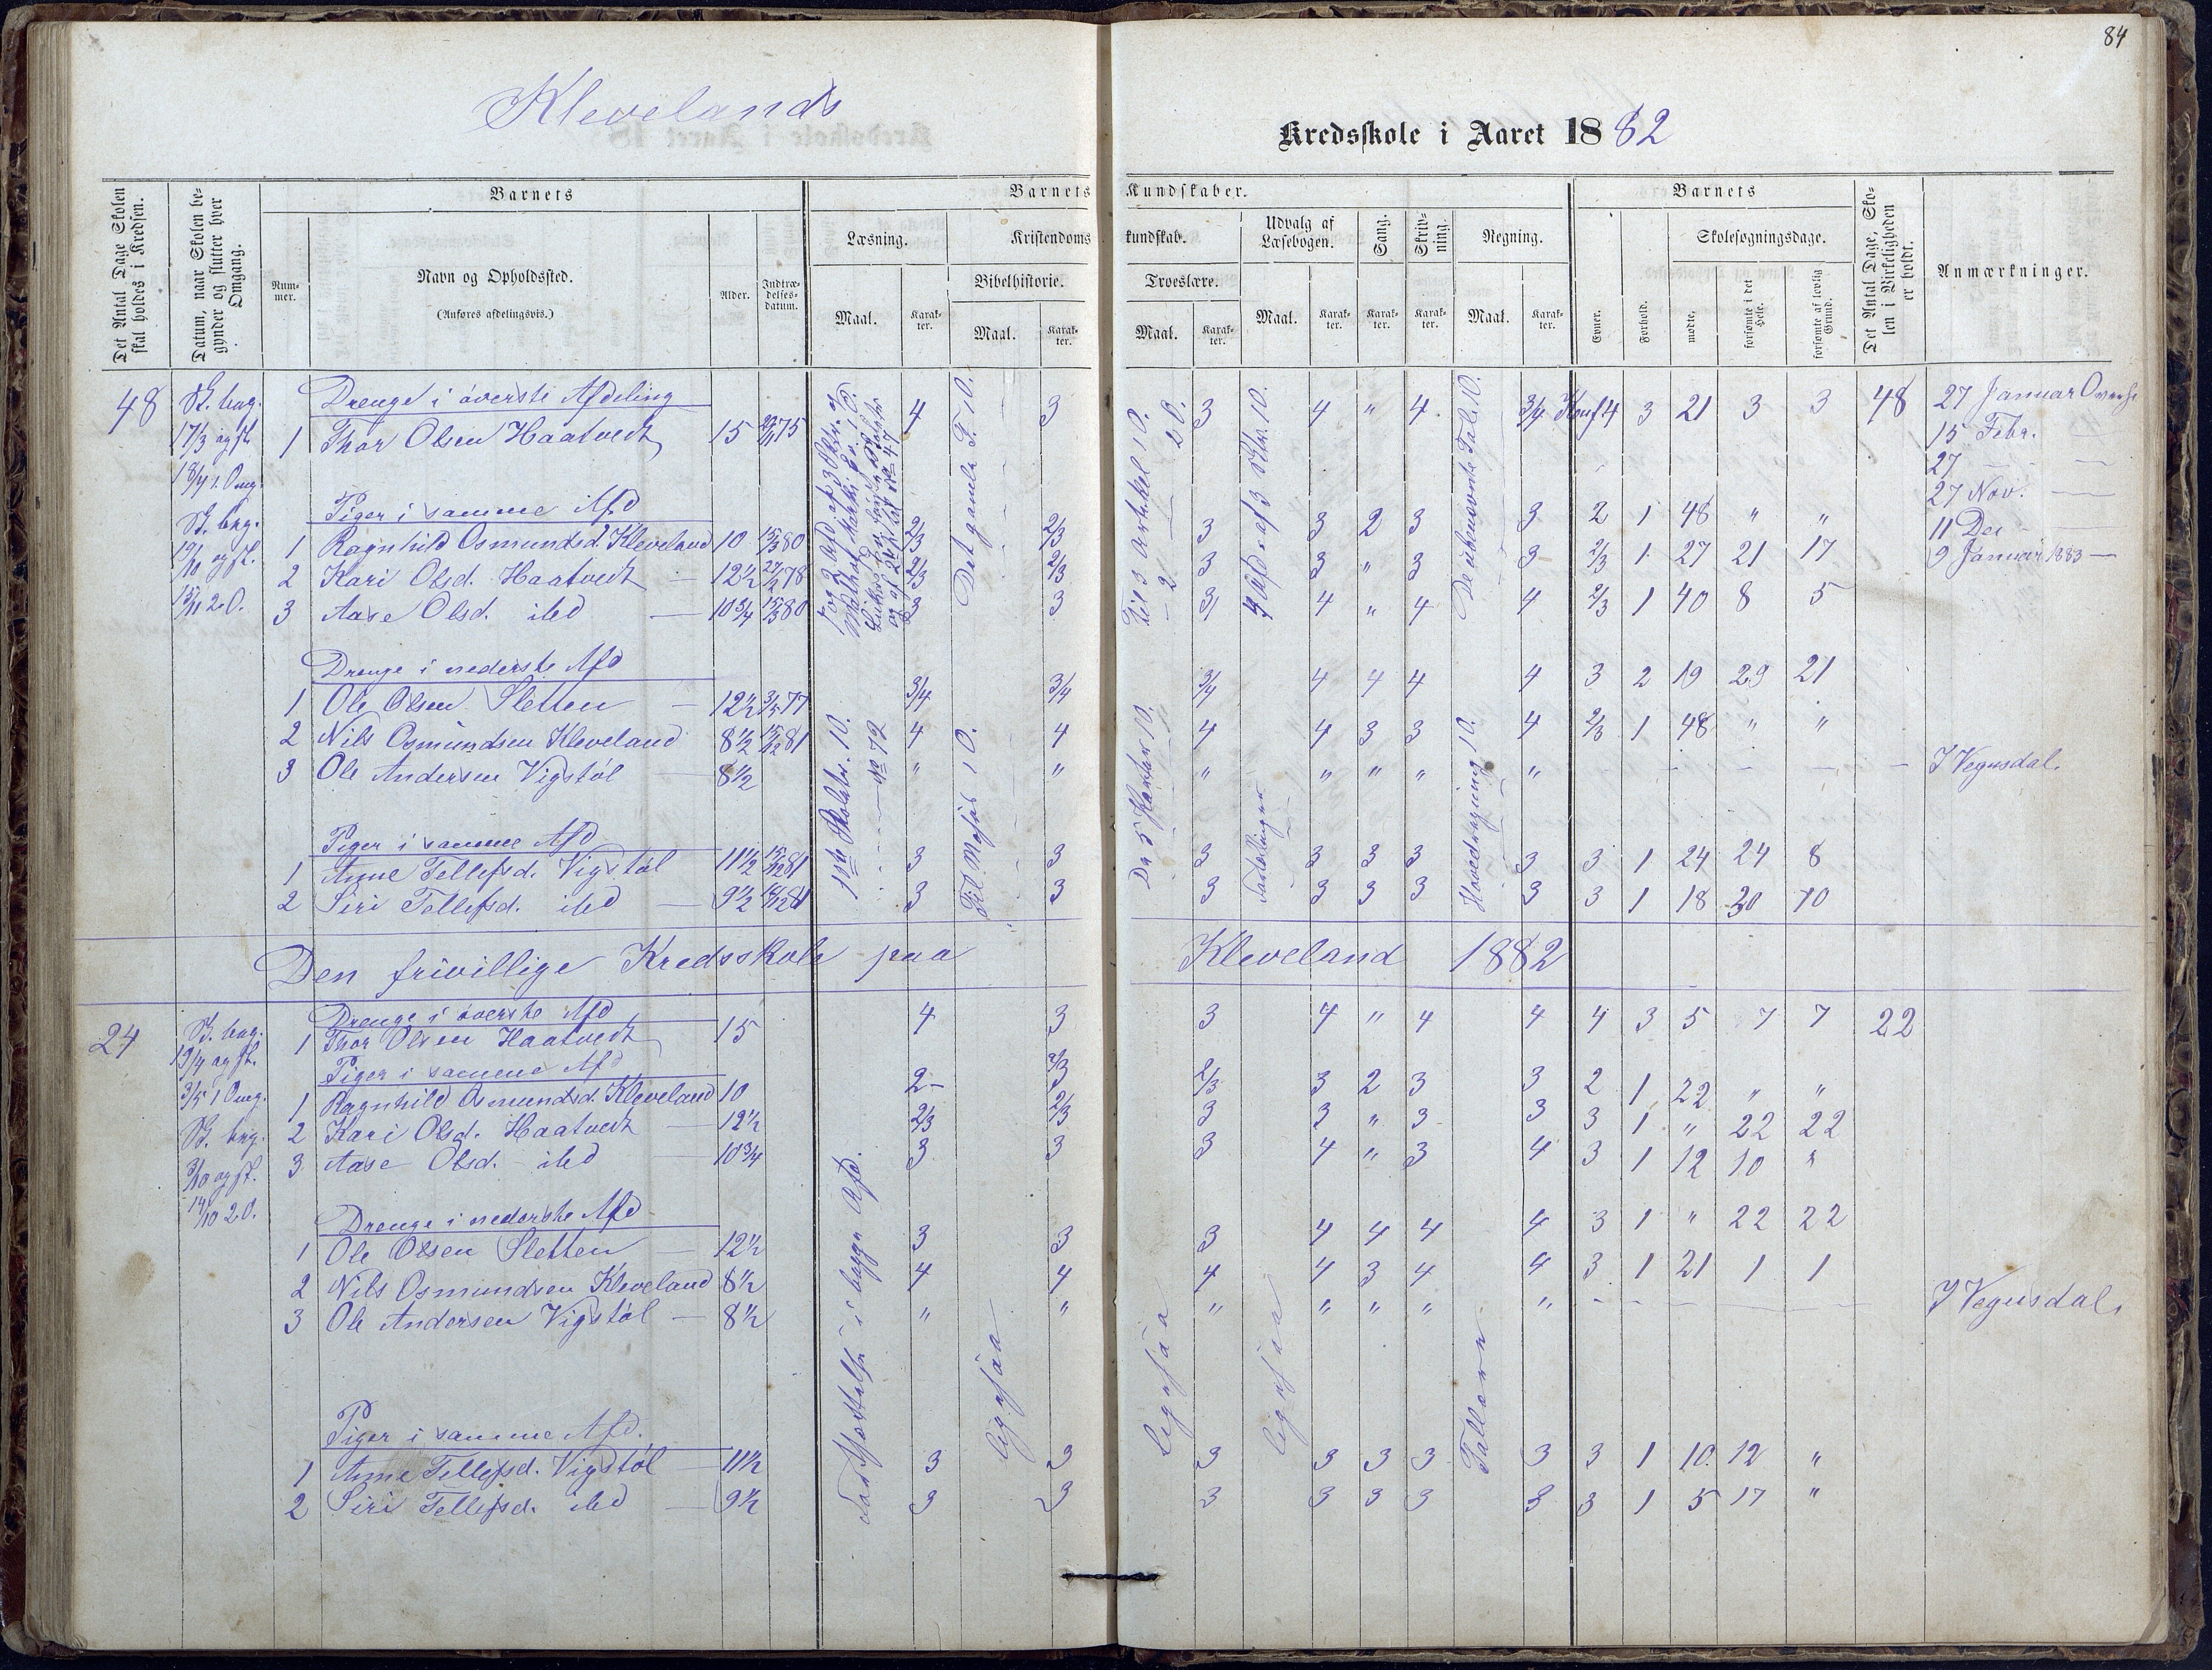 84
Klevelands
Kredsskole i Aaret 1882
Det Antal Dage Skolen skal holdes i Kredsen.
Datum, naar Skolen begynder og slutter hver Omgang.
Barnets
Nummer.
Navn og Opholdssted.
(Anføres afdelingsvis.)
Alder.
Indtrædelsesdatum.
Barnets Kundskaber.
Læsning.
Maal.
Karakter.
Kristendomskundskab.
Bibelhistorie.
Maal.
Karakter.
Troeslære.
Maal.
Karakter.
Udvalg af Læsebogen.
Maal.
Karakter.
Sang.
Karakter.
Skrivning.
Karakter.
Regning.
Maal.
Karakter.
Barnets
Evner.
Forhold.
Skolesøgningsdage.
mødte.
forsømte i det Hele.
forsømte af lovlig Grund.
Det Antal Dage, Skolen i Virkeligheden er holdt.
Anmærkninger.
48
Sk. beg. 17/3 og sl. 18/4 1. Omg.
Sk. beg. 19/10 og sl. 15/11 2. O.
Drenge i øverste Afdeling
1 Thor Olsen Haatvedt 15 75 4 3 3 4 " 4 3/4 4 3 21 3 3 48
Piger i samme Afd
1 Ragnhild Osmundsd. Kleveland 10 15/3 80 2/3 2/3 3 3 2 3 3 2 1 48 " "
2 Kari Olsd. Haatvedt — 12 1/2 78 2/3 2/3 3 3 " 3 3 2/3 1 27 21 17
3 Aase Olsd. ibd — 10 3/4 15/3 80 3 3 3 4 " 4 4 2/3 1 40 8 5
Drenge i nederste Afd
1 Ole Olsen Sletten — 12 1/2 77 3/4 3/4 3/4 4 4 4 4 3 2 19 29 21
2 Nils Osmundsen Kleveland 8 1/2 15/12 81 4 4 4 4 3 3 4 2/3 1 48 " "
3 Ole Andersen Vigstøl — 8 1/2 " " " " " " " I Vegusdal.
Piger i samme Afd
1 Anne Tellefsd. Vigstøl 11 1/2 15/12 81 3 3 3 3 3 3 3 3 1 24 24 8
2 Siri Tellefsd. ibd — 9 1/2 81 3 3 3 3 3 3 3 3 1 18 30 10
Det gamle T. 10.
Til Moses 10.
1ste Skoletr. 10.
No 72
Til 3 Artikel 10.
— 2 — 20.
De 5 Parter 10.
Fortællinger
De ubenævnte Tal 10.
Hovedregning 10.
27 Januar Overhr
15 Febr. —
27 — —
27 Nov. —
11 Dec —
9 Januar 1883 —
Den frivillige Kredsskole paa Kleveland 1882
24
Sk. beg. 19/4 og sl. 3/5 1 Omg.
Sk. beg. 3/10 og sl. 14/10 2. O.
Drenge i øverste Afd
1 Thor Olsen Haatvedt 15 4 3 3 4 " 4 4 4 3 5 7 7 22
Piger i samme Afd
1 Ragnhild Osmundsd. Kleveland 10 2- 2/3 2/3 3 2 3 3 2 1 22 " "
2 Kari Olsd. Haatvedt — 12 1/2 2/3 2/3 3 3 " 3 3 3 1 " 22 22
3 Aase Olsd. ibd — 10 3/4 3 3 3 4 " 3 4 3 1 12 10 "
Drenge i nederste Afd
1 Ole Olsen Sletten — 12 1/2 3 3 3 4 4 4 4 3 1 " 22 22
2 Nils Osmundsen Kleveland 8 1/2 4 4 4 4 3 4 4 3 1 21 1 1
3 Ole Andersen Vigstøl — 8 1/2 " " " " " " " I Vegusdal.
Piger i samme Afd.
1 Anne Tellefsd. Vigstøl 11 1/2 3 3 3 3 3 3 3 3 1 10 12 "
2 Siri Tellefsd. ibd — 9 1/2 3 3 3 3 3 3 3 3 1 5 17 "
Fortsættelse i begge Afd.
ligesaa
ligesaa
ligesaa
Tallære